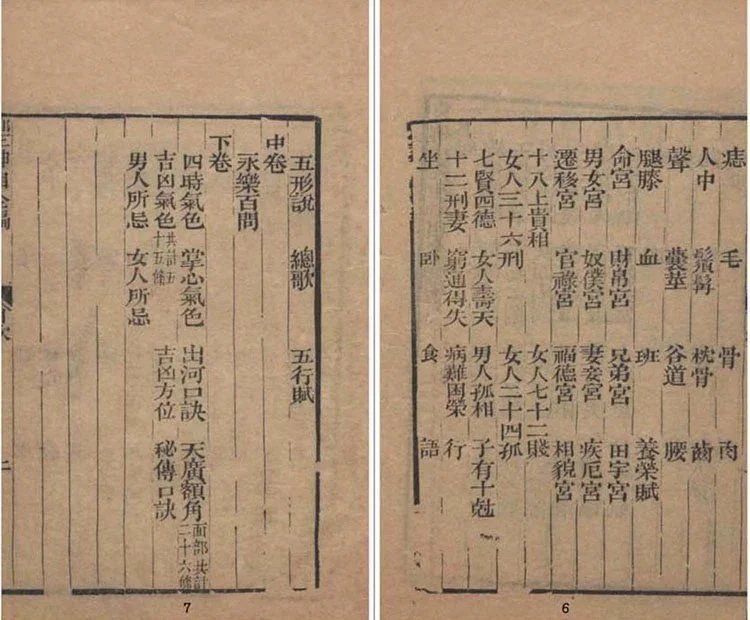 痣 毛 骨 肉
人中 鬚髩 枕骨 齒
聲 囊莖 谷道 腰
腿膝 血 班 養榮賦
命宮 財帛宮 兄弟宮 田宇宮
男女宮 奴僕宮 妻妾宮 疾厄宮
遷移宮 官祿宮 福德宮 相貌宮
十八上貴相 女人七十二賤
女人三十六刑 女人二十四孤
七賢四德 女人壽夭 男人孤相 子有十尅
十二刑妻 窮通得失 病難困榮 行
坐 臥 食 語
6
五形說 總歌 五行賦
中卷
永樂百問
下卷
四時氣色 掌心氣色 出河口訣 天廣額角 面部共計二十六條
吉凶氣色 共計五十五條 吉凶方位 秘傳口訣
男人所忌 女人所忌
7